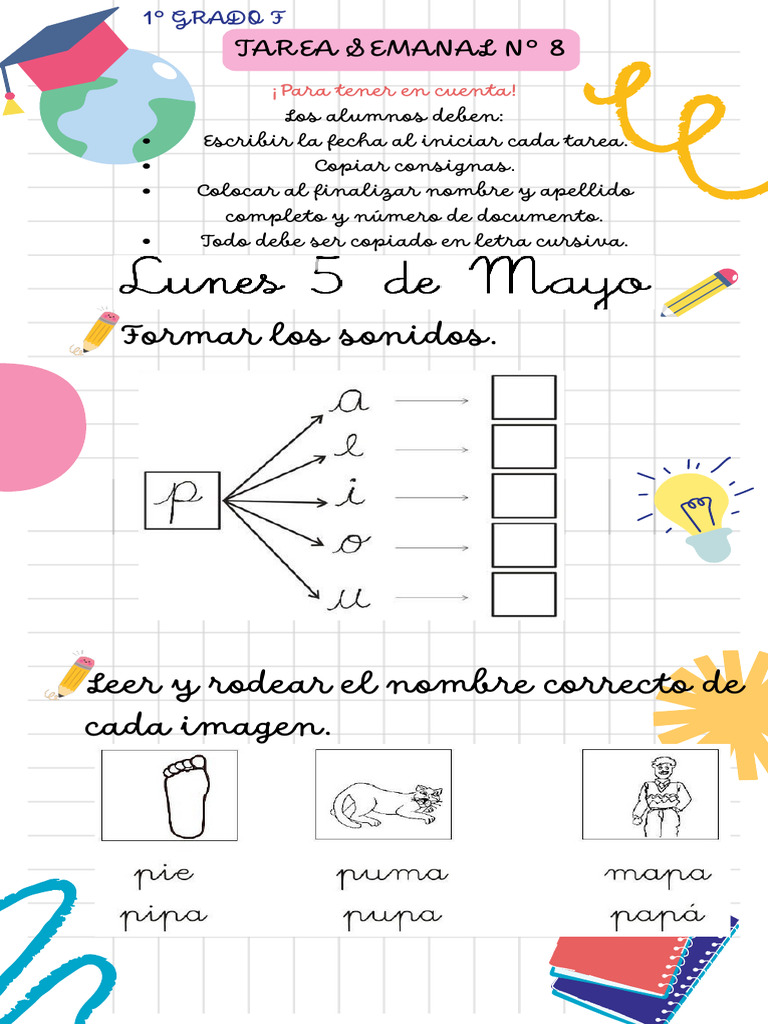 1º GRADO F
TAREA SEMANAL Nº 8
¡Para tener en cuenta!
Los alumnos deben:
• Escribir la fecha al iniciar cada tarea.
• Copiar consignas.
• Colocar al finalizar nombre y apellido
completo y número de documento.
• Todo debe ser copiado en letra cursiva.
Lunes 5 de Mayo
Formar los sonidos.
a
e
i
p
o
u
Leer y rodear el nombre correcto de
cada imagen.
pie puma mapa
pipa pupa papá